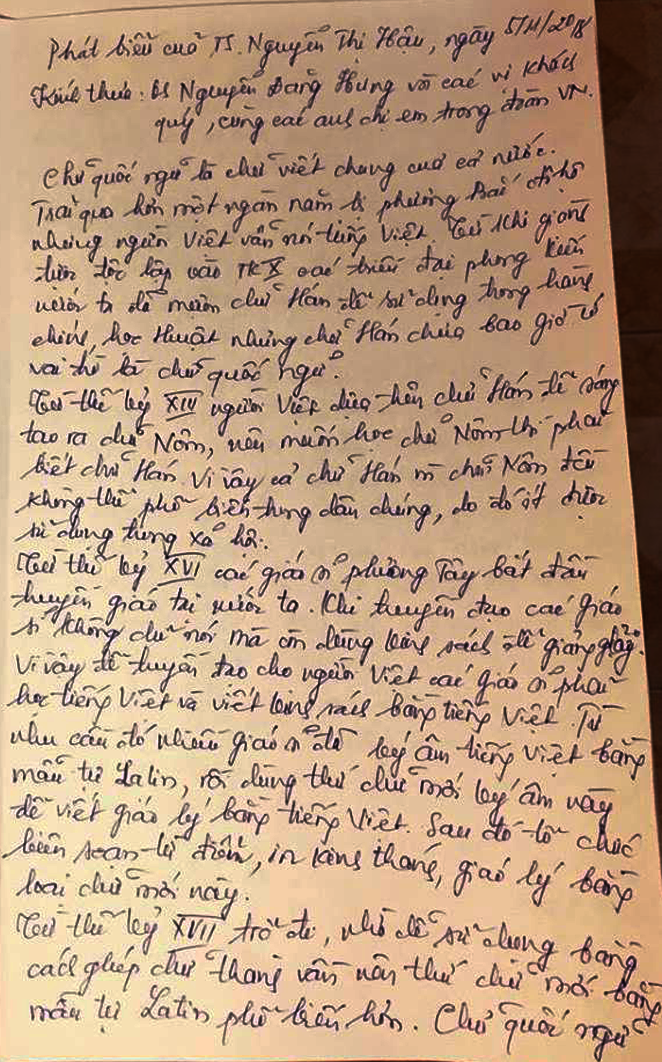 Phát biểu của TS. Nguyễn Thị Hậu, ngày 5/11/2018
Kính thưa: GS Nguyễn Đăng Hưng với các vị khách
quý, cùng các anh chị em trong đoàn VN.
Chữ quốc ngữ là chữ viết chung của cả nước.
Trải qua hơn một ngàn năm bị phương Bắc đô hộ
nhưng người Việt vẫn nói tiếng Việt. Từ khi giành
được độc lập vào TK X các triều đại phong kiến
nước ta đã mượn chữ Hán để sử dụng trong hành
chính, học thuật nhưng chữ Hán chưa bao giờ có
vai trò là chữ quốc ngữ.
Từ thế kỷ XIV người Việt dựa trên chữ Hán để sáng
tạo ra chữ Nôm, nên muốn học chữ Nôm thì phải
biết chữ Hán. Vì vậy cả chữ Hán và chữ Nôm đều
không thể phổ biến trong dân chúng, do đó ít được
sử dụng trong xã hội.
Từ thế kỷ XVI các giáo sĩ phương Tây bắt đầu
truyền giáo tại nước ta. Khi truyền đạo các giáo
sĩ không chỉ nói mà còn dùng kinh sách để giảng giải.
Vì vậy để truyền đạo cho người Việt các giáo sĩ phải
học tiếng Việt và viết kinh sách bằng tiếng Việt. Từ
nhu cầu đó nhiều giáo sĩ đã ký âm tiếng Việt bằng
mẫu tự Latin, rồi dùng thứ chữ mới ký âm này
để viết giáo lý bằng tiếng Việt. Sau đó tổ chức
biên soạn từ điển, in kinh thánh, giáo lý bằng
loại chữ mới này.
Từ thế kỷ XVII trở đi, nhờ dễ sử dụng bằng
cách ghép chữ thành vần nên thứ chữ mới bằng
mẫu tự Latin phổ biến hơn. Chữ quốc ngữ